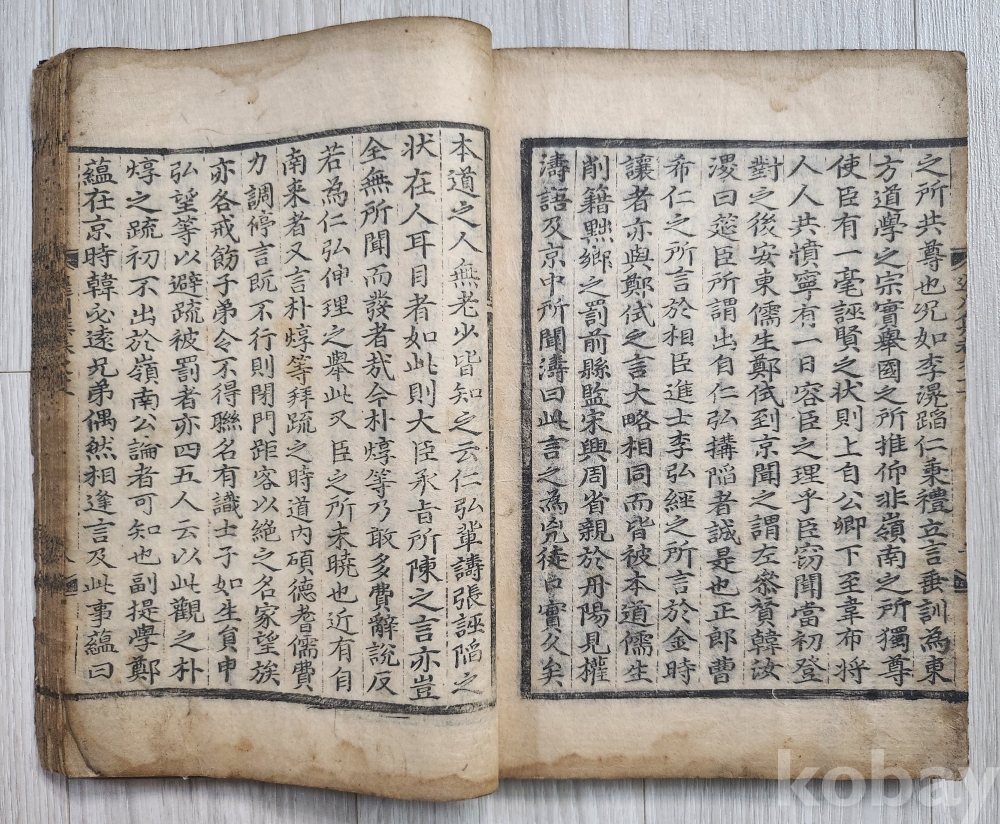 之所共尊也況如李滉蹈仁秉禮立言垂訓為東
方道學之宗實舉國之所推仰非嶺南之所獨尊
使臣有一毫誣賢之状則上自公卿下至韋布將
人人共憤寧有一日容臣之理乎臣窃聞當初登
對之後安東儒生鄭侙到京聞之謂左叅賛韓汝
溭曰筵臣所謂出自仁弘搆陷者誠是也正郎曹
希仁之所言於相臣進士李弘經之所言於金時
讓者亦與鄭侙之言大略相同而皆被本道儒生
削籍黜鄉之罰前縣監宋興周省親於丹陽見權
濤語及京中所聞濤曰此言之為兇徒口實久矣
本道之人無老少皆知之云仁弘輩譸張誣陷之
状在人耳目者如此則大臣承旨所陳之言亦豈
全無所聞而發者㢤今朴焞等乃敢多費辭說反
若為仁弘伸理之舉此又臣之所未曉也近有自
南来者又言朴焞等拜疏之時道内碩德耆儒費
力調停言既不行則閉門距容以絶之名家望族
亦各戒飭子弟令不得聯名有識士子如生員申
弘望等以避疏被罰者亦四五人云以此觀之朴
焞之疏初不出於嶺南公論者可知也副提學鄭
蘊在京時韓必遠兄弟偶然相逢言及此事蘊曰
kobay